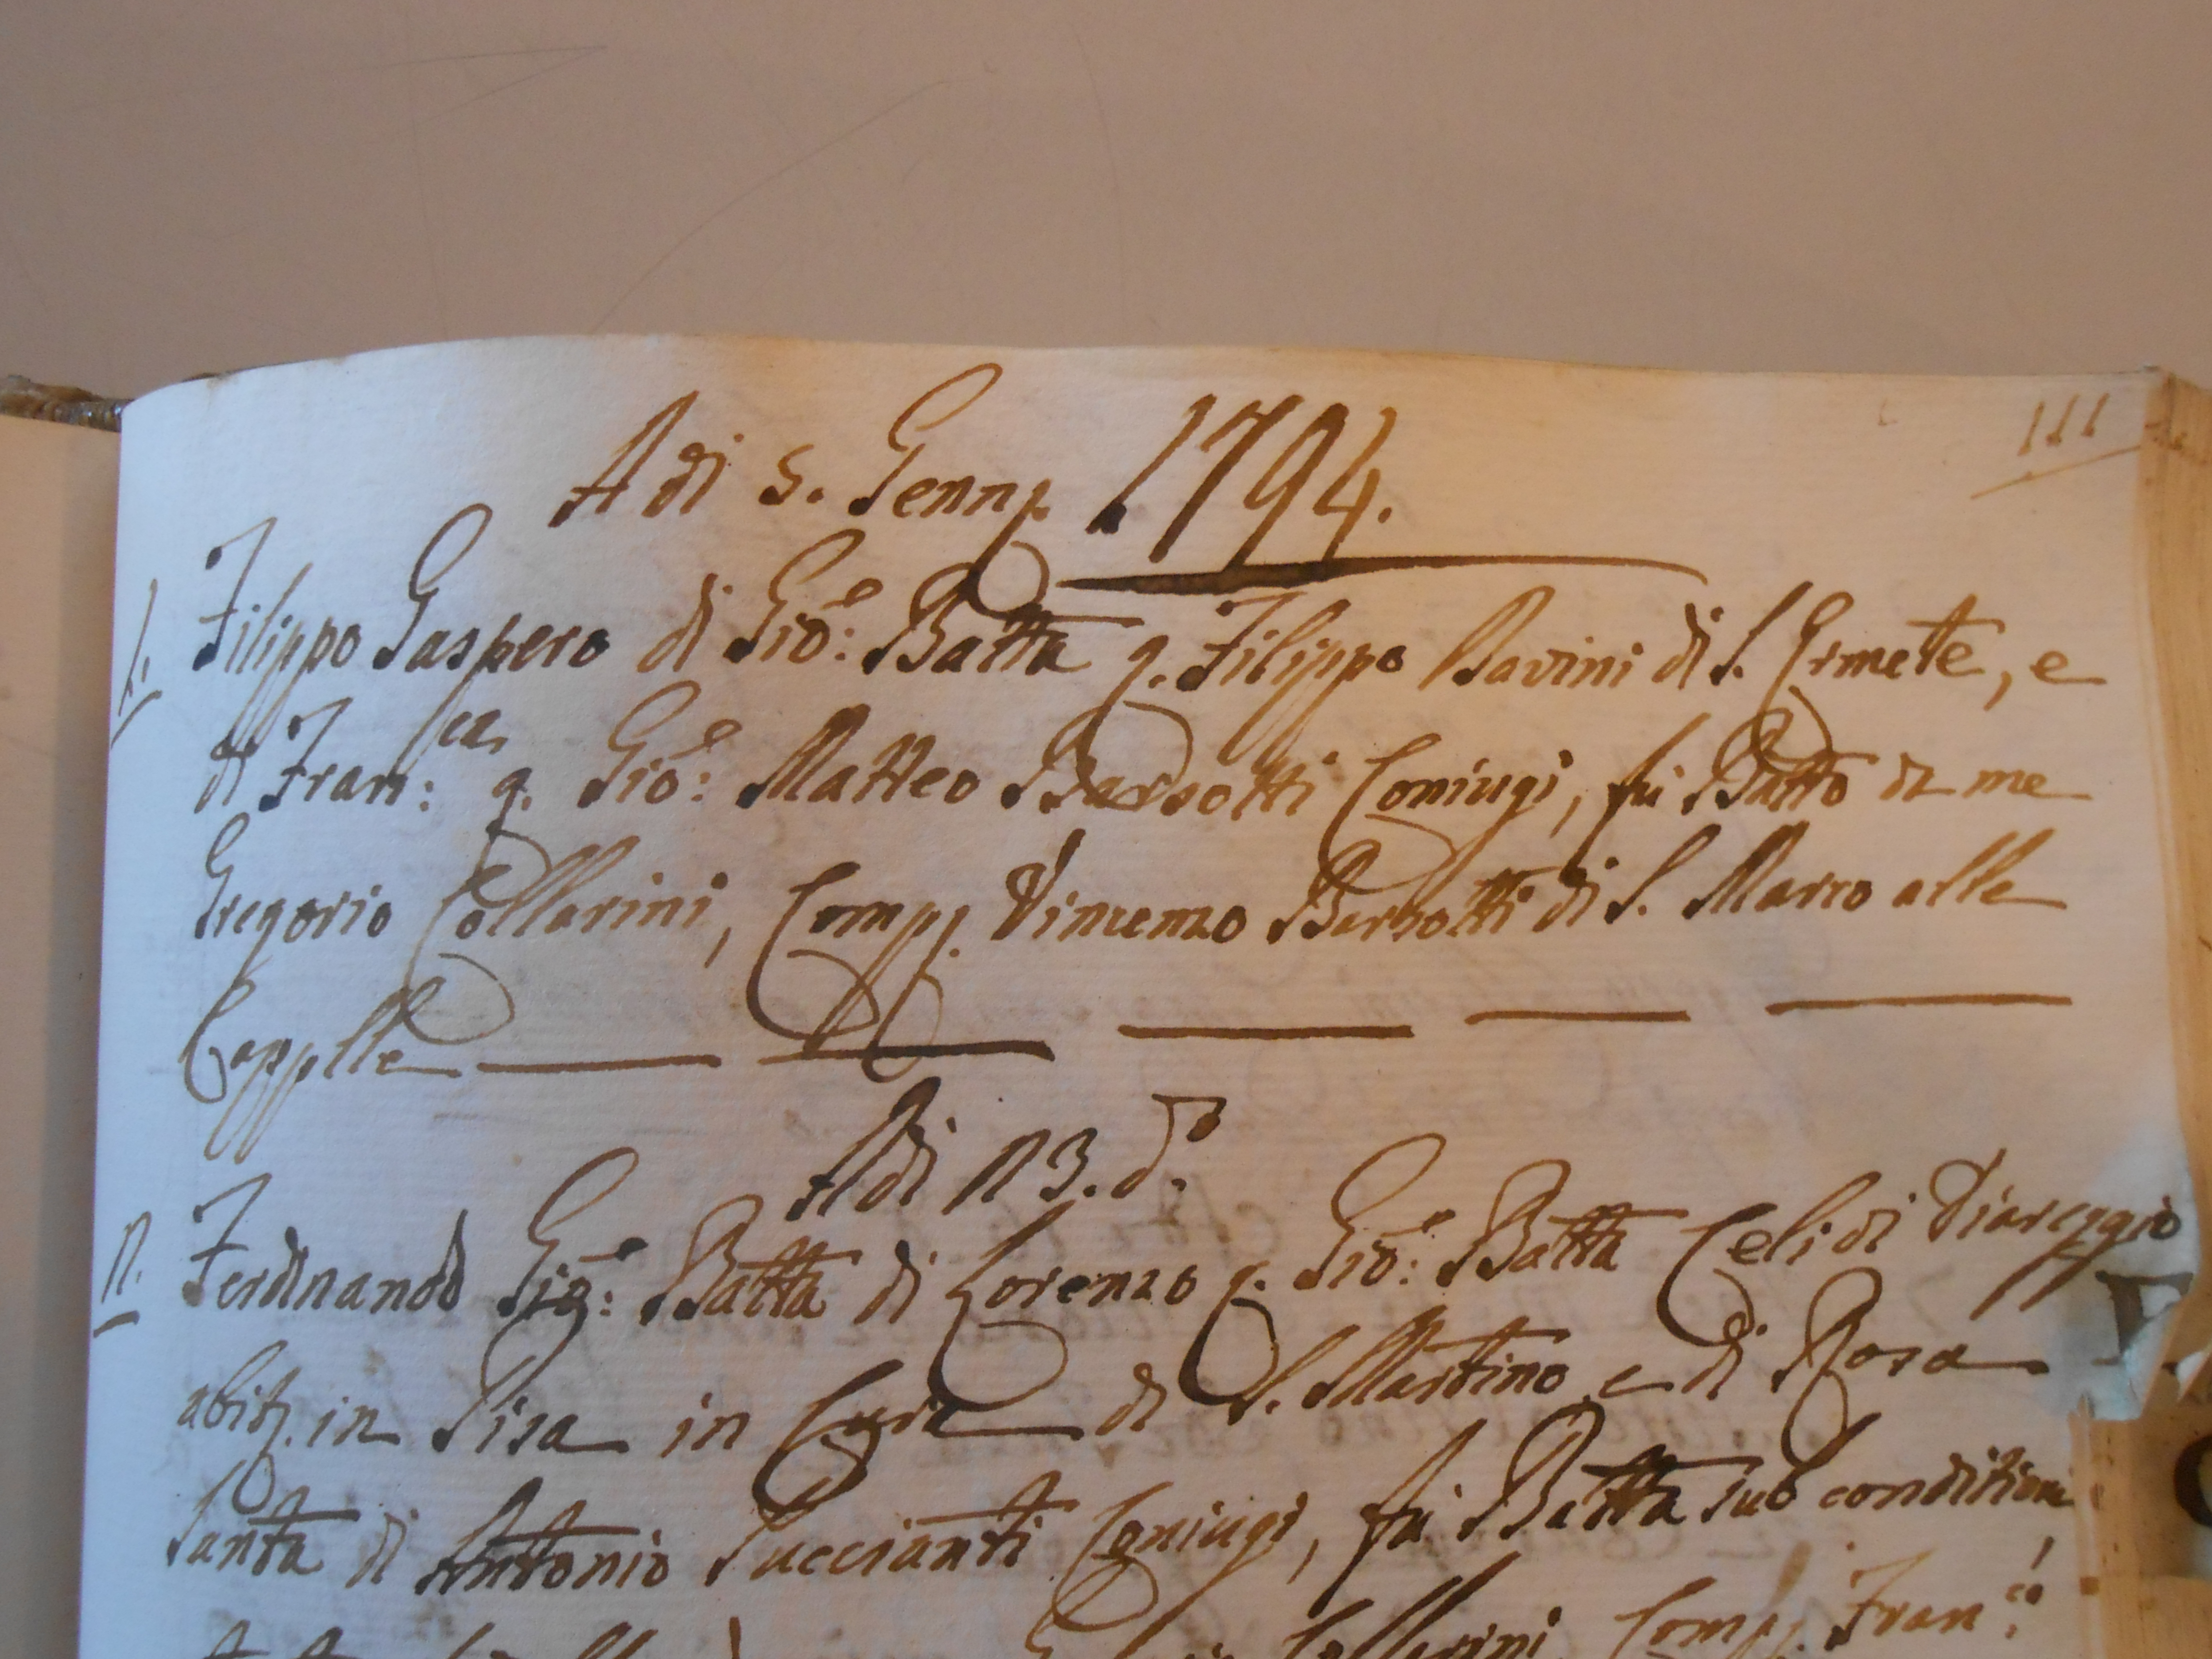 111
A di 5. Genn. 1794.
1. Filippo Gaspero di Gio: Batta q. Filippo Bavini di S. Ermete, e
di Fran:ca q. Gio: Matteo Barsotti Coniugi, fu Batto da me
Gregorio Collarini, Comp. Vincenzo Barsotti di S. Marco alle
Cappelle
A di 23. do.
2. Ferdinando Gio: Batta di Lorenzo q. Gio: Batta Celi di Viareggio
abit. in Pisa in Cura di S. Martino e di Rosa
Santa di Antonio Puccianti Coniugi, fu Batta sub conditione
Collarini, Comp. Fran:co